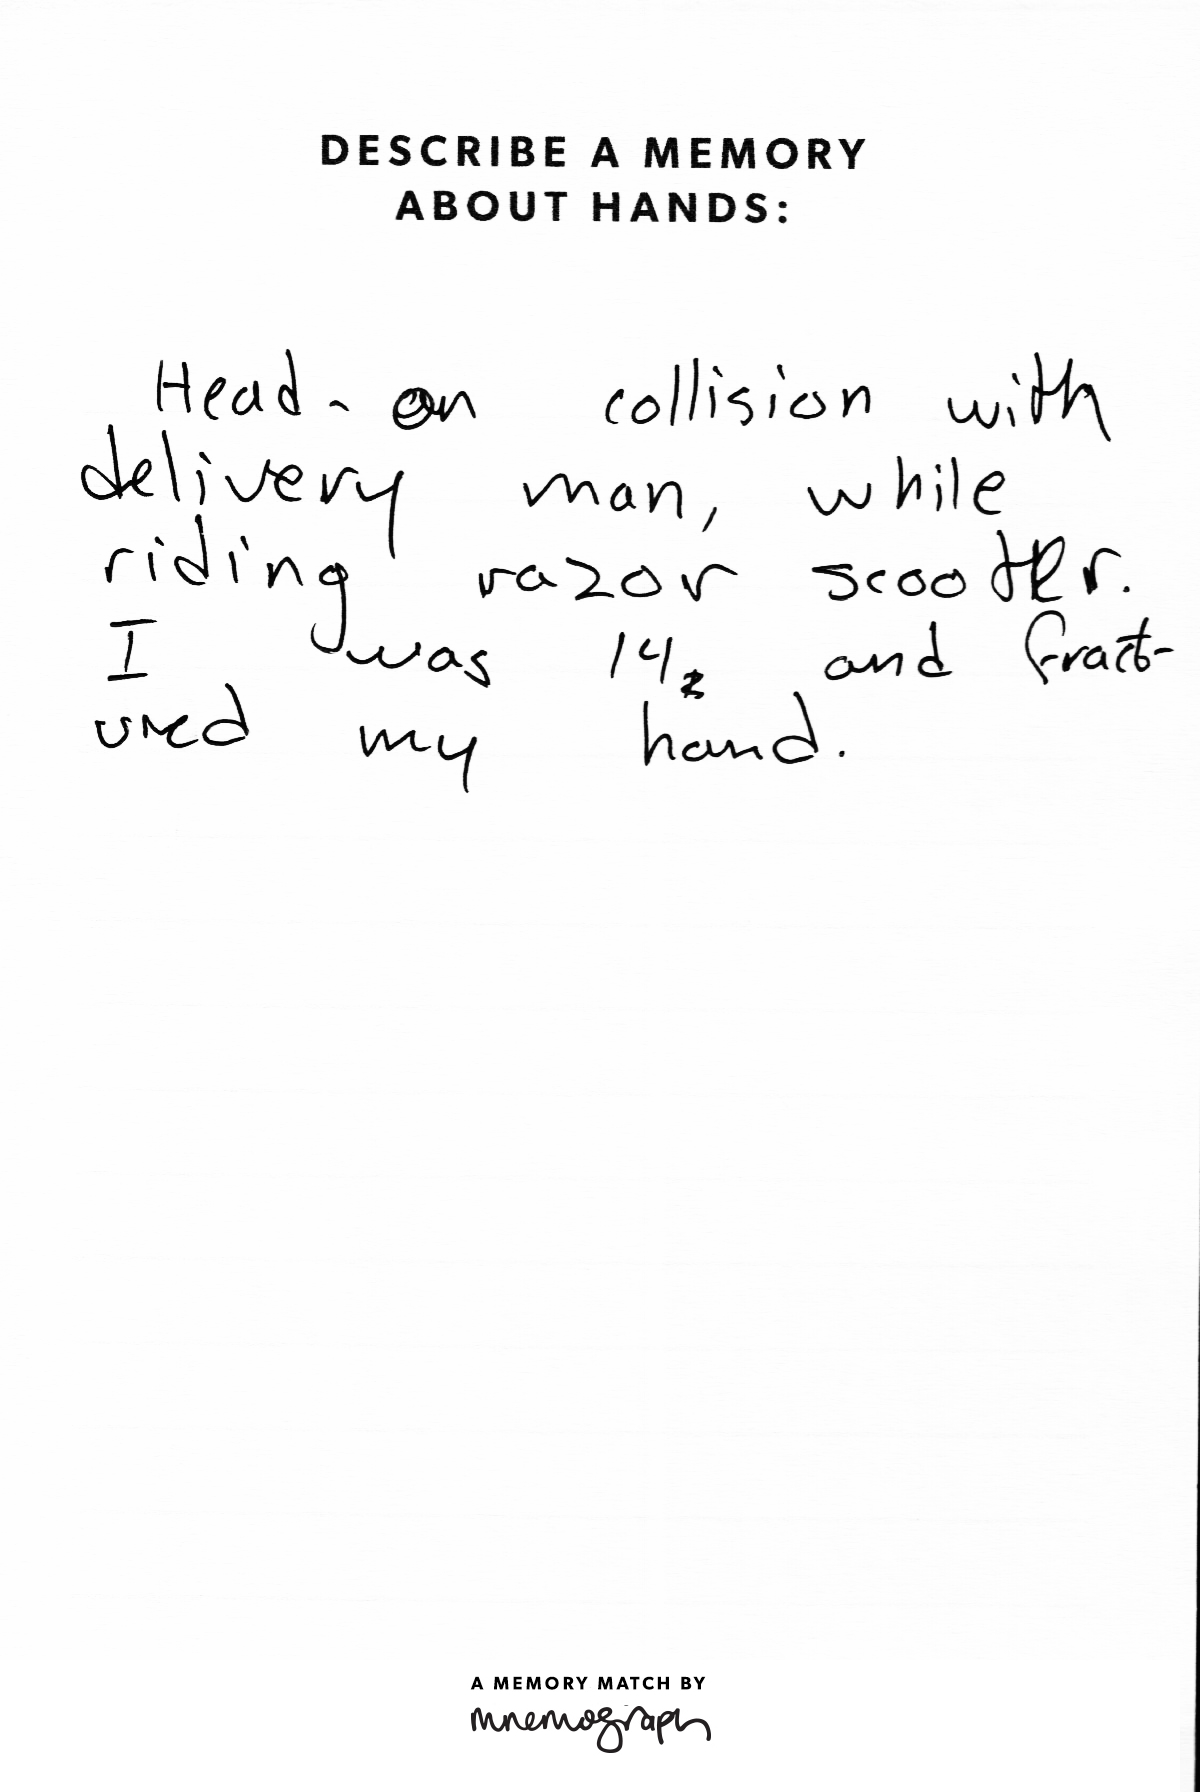 DESCRIBE A MEMORY
ABOUT HANDS:
Head-on collision with
delivery man, while
riding razor scooter.
I was 14, and fract-
ured my hand.
A MEMORY MATCH BY
mnemograph